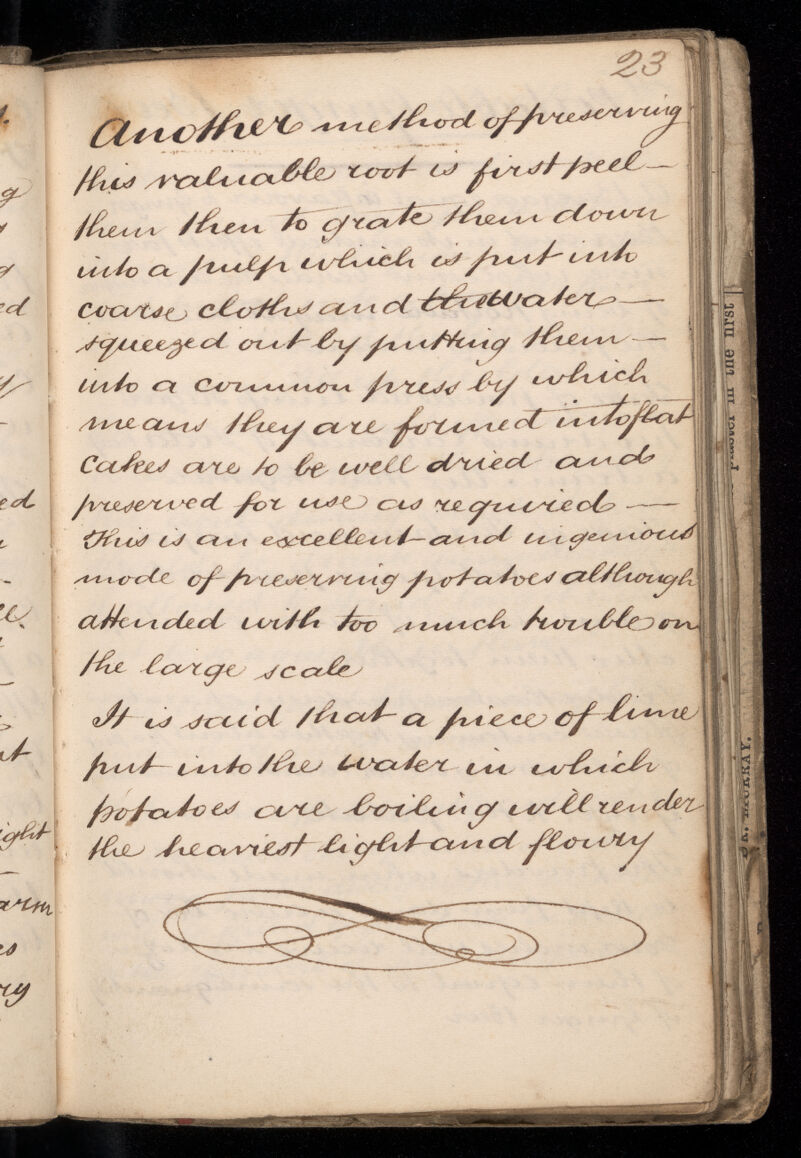 23
Another method of preserving
this valuable root is first peel —
them then to grate them down
into a pulp which is put into
coarse cloths and the water —
squeezed out by putting them —
into a common press by which
means they are formed into flat
cakes are to be well dried and
preserved for use as requried —
This is an excellent and ingenious
mode of preserving potatoes although
attended with too much trouble on
the large scale
It is said that a piece of lime
put into the water in which
potatoes are boiling will render
the heaviest light and floury
g
ed
ed
ight
arm
es
ry
in the first
MURRAY.